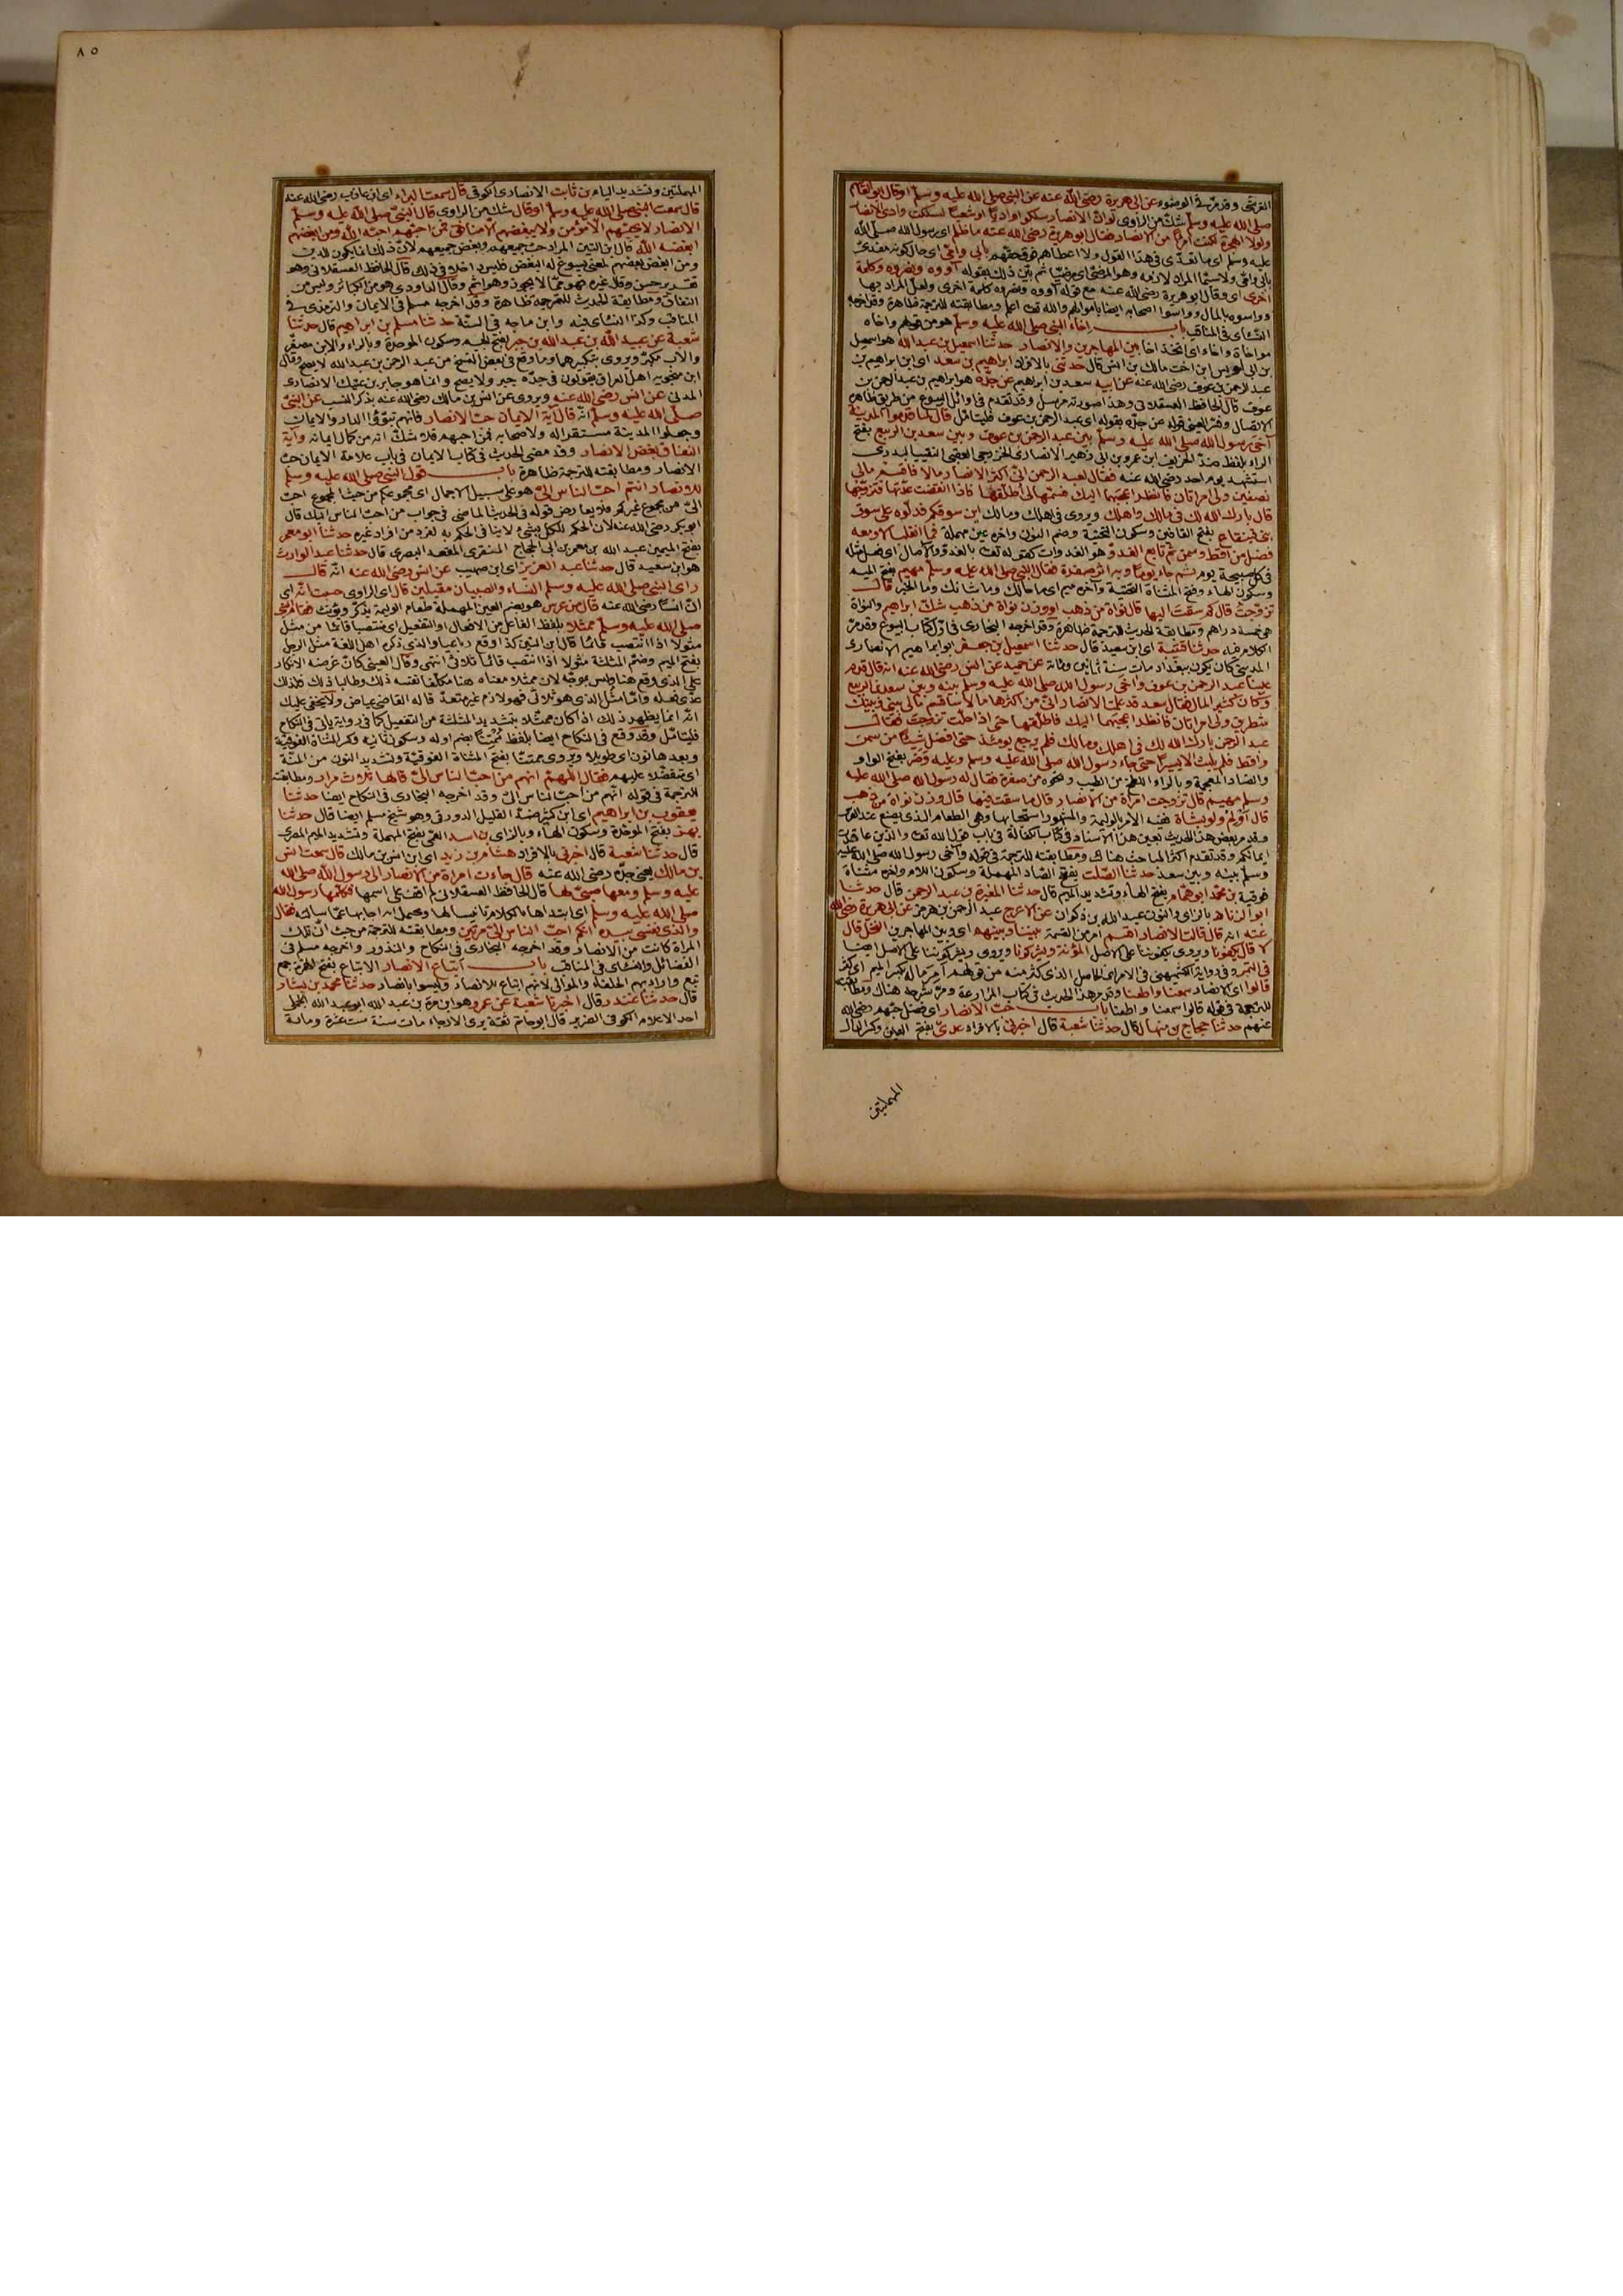 القرشى وقد مرّ فى الوضوء عن ابى هريرة رضى الله عنه عن النبى صلى الله عليه وسلم او قال ابو القاسم
صلى الله عليه وسلم شك من الراوى لو انّ الانصار سلكوا واديا او شعبا لسلكت وادى الانصار
ولولا الهجرة لكنت امرأ من الانصار فقال ابو هريرة رضى الله عنه ما ظلم اى رسول الله صلى الله
عليه وسلم اى ما تعدّى فى هذا القول ولا اعطاهم فوق حقهم بابى وامّى اى حال كونه مفدى
اخرى اى وقال ابو هريرة رضى الله عنه مع قوله آووه ونصروه كلمة اخرى ولعل المراد بها
وواسوه بالمال وواسوا اصحابه ايضا باموالهم والله تعالى اعلم ومطابقته للترجمة ظاهرة وقد اخرجه
النسائى فى المناقب باب اخاء النبى صلى الله عليه وسلم هو من قولهم واخاه
مواخاة واخاء اى اتخذ اخا بين المهاجرين والانصار حدثنا اسمعيل بن عبد الله هو اسمعيل
بن ابى اويس ابن اخت مالك بن انس قال حدثنى بالافراد ابراهيم بن سعد اى ابن ابراهيم بن
عبد الرحمن بن عوف رضى الله عنه عن ابيه سعد بن ابراهيم عن جدّه هو ابراهيم بن عبد الرحمن بن
عوف قال الحافظ العسقلانى وهذا صورته مرسل وقد تقدم فى اوائل البيوع من طريق ظاهره
الاتصال وفسّر العينى قوله عن جدّه بقوله اى عبد الرحمن بن عوف فليتأمل قال لما قدموا المدينة
آخى رسول الله صلى الله عليه وسلم بين عبد الرحمن بن عوف وبين سعد بن الربيع بفتح
الراء بلفظ ضدّ الخريف ابن عمرو بن ابى زهير الانصارى الخزرجى العقبى النقيب البدرى
استشهد يوم احد رضى الله عنه فقال لعبد الرحمن انّى اكثر الانصار مالا فاقسم مالى
نصفين ولى امرأتان فانظر اعجبهما اليك فسمّها لى اطلّقها فاذا انقضت عدّتها فتزوّجها
قال بارك الله لك فى مالك واهلك ويروى فى اهلك ومالك اين سوقكم فدلّوه على سوق
بنى قينقاع بفتح القافين وسكون التحتية وضم النون واخره عين مهملة فما انقلب الا ومعه
فضل من اقط وسمن ثم تابع الغدوّ هو الغدوات كقوله تعالى بالغدوّ والآصال اى فعل مثله
فى كل صبيحة يوم ثم جاء يوما وبه اثر صفرة فقال النبى صلى الله عليه وسلم مهيم بفتح الميم
وسكون الهاء وفتح المثناة التحتية وآخره ميم اى ما حالك وما شانك وما الخبر قال
تزوّجت قال كم سقت اليها قال نواة من ذهب او وزن نواة من ذهب شك ابراهيم والنواة
خمسة دراهم ومطابقة الحديث للترجمة ظاهرة وقد اخرجه البخارى فى اوّل كتاب البيوع وقد مرّ
الكلام فيه حدثنا قتيبة اى ابن سعيد قال حدثنا اسمعيل بن جعفر ابو ابراهيم الانصارى
المدينى كان يكون ببغداد مات سنة ثمانين ومائة عن حميد عن انس رضى الله عنه انه قال قدم
علينا عبد الرحمن بن عوف وآخى رسول الله صلى الله عليه وسلم بينه وبين سعد بن الربيع
وكان كثير المال فقال سعد قد علمت الانصار انّى من اكثرها مالا سأقسم مالى بينى وبينك
شطرين ولى امرأتان فانظر اعجبهما اليك فاطلّقها حتى اذا حلّت تزوجتها فقال
عبد الرحمن بارك الله لك فى اهلك ومالك فلم يرجع يومئذ حتى افضل شيئا من سمن
واقط فلم يلبث الا يسيرا حتى جاء رسول الله صلى الله عليه وسلم وعليه وضر بفتح الواو
والضاد المعجمة وبالراء اللطخ من الطيب ونحوه من صفرة فقال له رسول الله صلى الله عليه
وسلم مهيم قال تزوجت امرأة من الانصار قال ما سقت فيها قال وزن نواة من ذهب
قال أولم ولو بشاة فيه الامر بالوليمة والمشهور استحبابها وهى الطعام الذى يصنع عند العرس
وقد مر بعض هذا الحديث بعين هذا الاسناد فى كتاب الكفالة فى باب قول الله تعالى والذين عاقدت
ايمانكم وقد تقدم اكثر المباحث هناك ومطابقته للترجمة فى قوله وآخى رسول الله صلى الله عليه
وسلم بينه وبين سعد حدثنا الصّلت بفتح الصاد المهملة وسكون اللام واخره مثناة
فوقية بن محمد ابو همّام بفتح الهاء وتشديد الميم قال حدثنا المغيرة بن عبد الرحمن قال حدثنا
ابو الزناد بالزاى والنون عبد الله بن ذكوان عن الاعرج عبد الرحمن بن هرمز عن ابى هريرة رضى الله
عنه انه قال قالت الانصار اقسم امر من القسمة بيننا وبينهم اى وبين المهاجرين النخل قال
لا قال يكفونا ويروى يكفوننا على الاصل المؤنة ويشركونا ويروى ويشركوننا على الاصل ايضا
قالوا اى الانصار سمعنا واطعنا وقد مر هذا الحديث فى كتاب المزارعة ومرّ شرحه هناك ومطابقته
للترجمة فى قوله قالوا سمعنا واطعنا باب حب الانصار اى فضل حبهم رضى الله
عنهم حدثنا حجاج بن منهال قال حدثنا شعبة قال اخبرنى بالافراد عدىّ بفتح العين وكسر الدال
المهملتين
٨٥
المهملتين وتشديد الياء بن ثابت الانصارى الكوفى قال سمعت البراء اى ابن عازب رضى الله عنه
قال سمعت النبى صلى الله عليه وسلم او قال شك من الراوى قال النبى صلى الله عليه وسلم
الانصار لا يحبّهم الا مؤمن ولا يبغضهم الا منافق فمن احبهم احبّه الله ومن ابغضهم
ابغضه الله قال ابن التين المراد حب جميعهم وبغض جميعهم لانّ ذلك انما يكون للدين
ومن ابغض بعضهم لمعنى يسوغ له البغض فليس داخلا فى ذلك قال الحافظ العسقلانى وهو
النفاق ومطابقة الحديث للترجمة ظاهرة وقد اخرجه مسلم فى الايمان والترمذى فى
المناقب وكذا النسائى فيه وابن ماجه فى السنّة حدثنا مسلم بن ابراهيم قال حدثنا
شعبة عن عبد الله بن عبد الله بن جبر بفتح الجيم وسكون الموحدة وبالراء والابن مصغّر
والاب مكبّر ويروى بتكبيرهما وما وقع فى بعض النسخ من عبد الرحمن بن عبد الله لا يصح وقال
ابن منجويه اهل العراق يقولون فى جدّه جبر ولا يصح وانما هو جابر بن عتيك الانصارى
المدنى عن انس رضى الله عنه ويروى عن انس بن مالك رضى الله عنه بذكر النسب عن النبىّ
صلى الله عليه وسلم انّه قال آية الايمان حبّ الانصار فانهم تبوّؤا الدار والايمان
وجعلوا المدينة مستقرا له ولاصحابه فمن احبهم فلا شكّ انه من كمال ايمانه وآية
النفاق بغض الانصار وقد مضى الحديث فى كتاب الايمان فى باب علامة الايمان حبّ
الانصار ومطابقته للترجمة ظاهرة باب قول النبى صلى الله عليه وسلم
للانصار انتم احبّ الناس الىّ هو على سبيل الاجمال اى مجموعكم من حيث المجموع احب
الىّ من مجموع غيركم فلا يعارض قوله فى الحديث الماضى فى جواب من احب الناس اليك قال
ابو بكر رضى الله عنه لان الحكم للكل بشئ لا ينافى الحكم به لفرد من افراد غيره حدثنا ابو معمر
بفتح الميمين عبد الله بن عمرو بن ابى الحجاج المنقرى المقعد البصرى قال حدثنا عبد الوارث
هو ابن سعيد قال حدثنا عبد العزيز اى ابن صهيب عن انس رضى الله عنه انّه قال
راى النبى صلى الله عليه وسلم النساء والصبيان مقبلين قال اى الراوى حسبت انّه اى
انّ انسا رضى الله عنه قال من عرس هو بضم العين المهملة طعام الوليمة يذكّر ويؤنّث فقام النبى
صلى الله عليه وسلم ممثلا بلفظ الفاعل من الافعال او التفعيل اى منتصبا قائما من مثل
مثولا اذا انتصب قائما قال ابن التين كذا وقع رباعيا والذى ذكره اهل اللغة مثل الرجل
بفتح الميم وضمّ المثلثة مثولا اذا انتصب قائما ثلاثىّ انتهى وقال العينى كأنّ غرضه الانكار
على الذى وقع هنا وليس بموجّه لان ممثلا معناه هنا مكلّفا نفسه ذلك وطالبا ذلك فلذلك
عدّى فعله وامّا مثل الذى هو ثلاثى فهو لازم غير متعدّ قاله القاضى عياض ولا يخفى عليك
انّه انما يظهر ذلك اذا كان ممثلا بتشديد المثلثة من التفعيل كما فى رواية ياتى فى النكاح
فليتأمل وقد وقع فى النكاح ايضا بلفظ مُمْتنّا بضم اوله وسكون ثانيه وكسر المثناة الفوقيّة
وبعدها نون اى طويلا ويروى ممتنّا بفتح المثناة الفوقيّة وتشديد النون من المنّة
اى متفضّلا عليهم فقال اللهمّ انتم من احبّ الناس الىّ قالها ثلاث مرار ومطابقته
للترجمة فى قوله انتم من احبّ الناس الىّ وقد اخرجه البخارى فى النكاح ايضا حدثنا
يعقوب بن ابراهيم اى ابن كثير ضدّ القليل الدورقى وهو شيخ مسلم ايضا قال حدثنا
بهز بفتح الموحّدة وسكون الهاء وبالزاى بن اسد العمّى بفتح المهملة وتشديد الميم المصرى
قال حدثنا شعبة قال اخبرنى بالافراد هشام بن زيد اى ابن انس بن مالك قال سمعت انس
بن مالك يعنى جدّه رضى الله عنه قال جاءت امرأة من الانصار الى رسول الله صلى الله
عليه وسلم ومعها صبىّ لها قال الحافظ العسقلانى لم اقف على اسمها فكلّمها رسول الله
صلى الله عليه وسلم اى ابتداها بالكلام تانيسا لها ويحتمل انه اجابها عمّا سالته فقال
والذى نفسى بيده انكم احبّ الناس الىّ مرّتين ومطابقته للترجمة من حيث انّ تلك
المرأة كانت من الانصار وقد اخرجه البخارى فى النكاح والنذور واخرجه مسلم فى
الفضائل والنسائى فى المناقب باب اتباع الانصار الاتباع بفتح الهمزة جمع
تبع واراد بهم الحلفاء والموالى لانهم اتباع للانصار وليسوا بانصار حدثنا محمد بن بشار
قال حدثنا غندر قال اخبرنا شعبة عن عمرو هو ابن مرّة بن عبد الله ابو عبد الله الجملى
احد الاعلام الكوفى الضرير قال ابو حاتم ثقة يرى الارجاء مات سنة ست عشرة ومائة